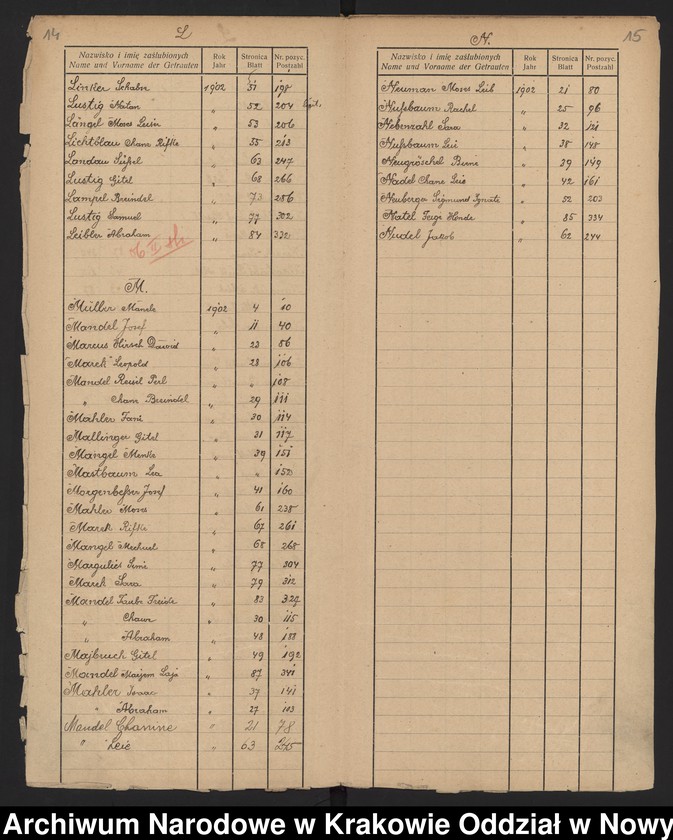 14
L
Nazwisko i imię zaślubionych Rok Stronica Nr. pozyc.
Name und Vorname der Getrauten Jahr Blatt Postzahl
Linker Schabse 1902 51 198
Lustig Natan " 52 204
Längel Moses Leisir " 53 206
Lichtblau Chane Rifke " 55 213
Landau Süssel " 63 247
Lustig Gitel " 68 266
Lampel Breindel " 73 286
Lustig Samuel " 77 302
Leibler Abraham " 84 332
M.
Müller Manele 1902 4 10
Mandel Josef " 11 40
Marcus Hirsch Dawid " 23 86
Marek Leopold " 28 106
Mandel Reisil Perl " " 108
" Chane Breindel " 29 111
Mahler Fani " 30 114
Mallinger Gitel " 31 117
Mangel Menke " 39 151
Mastbaum Lea " " 152
Morgenbesser Josef " 41 160
Mahler " 61 238
Marek Rifke " 67 261
Mangel Mechuel " 68 268
Margulies Simi " 77 304
Marek Sara " 79 312
Mandel Taube Freide " 83 327
" " 30 115
" Abraham " 48 188
Majbruch Gitel " 49 192
Mandel Marjem Laja " 87 341
Mahler Isaac " 37 141
" Abraham " 27 103
Mandel Chanine " 21 78
" Leie " 63 245
15
N.
Nazwisko i imię zaślubionych Rok Stronica Nr. pozyc.
Name und Vorname der Getrauten Jahr Blatt Postzahl
Neuman Moses Leib 1902 21 80
Nußbaum Rachel " 25 96
Nebenzahl Sara " 32 121
Nußbaum Leie " 38 148
Neugröschel Berne " 39 149
Nadel Chane Leie " 42 161
Neuberger Sigmund Ignatz " 52 203
Natel Feige Hende " 85 334
Nudel Jakob " 62 244
Archiwum Narodowe w Krakowie Oddział w Nowy